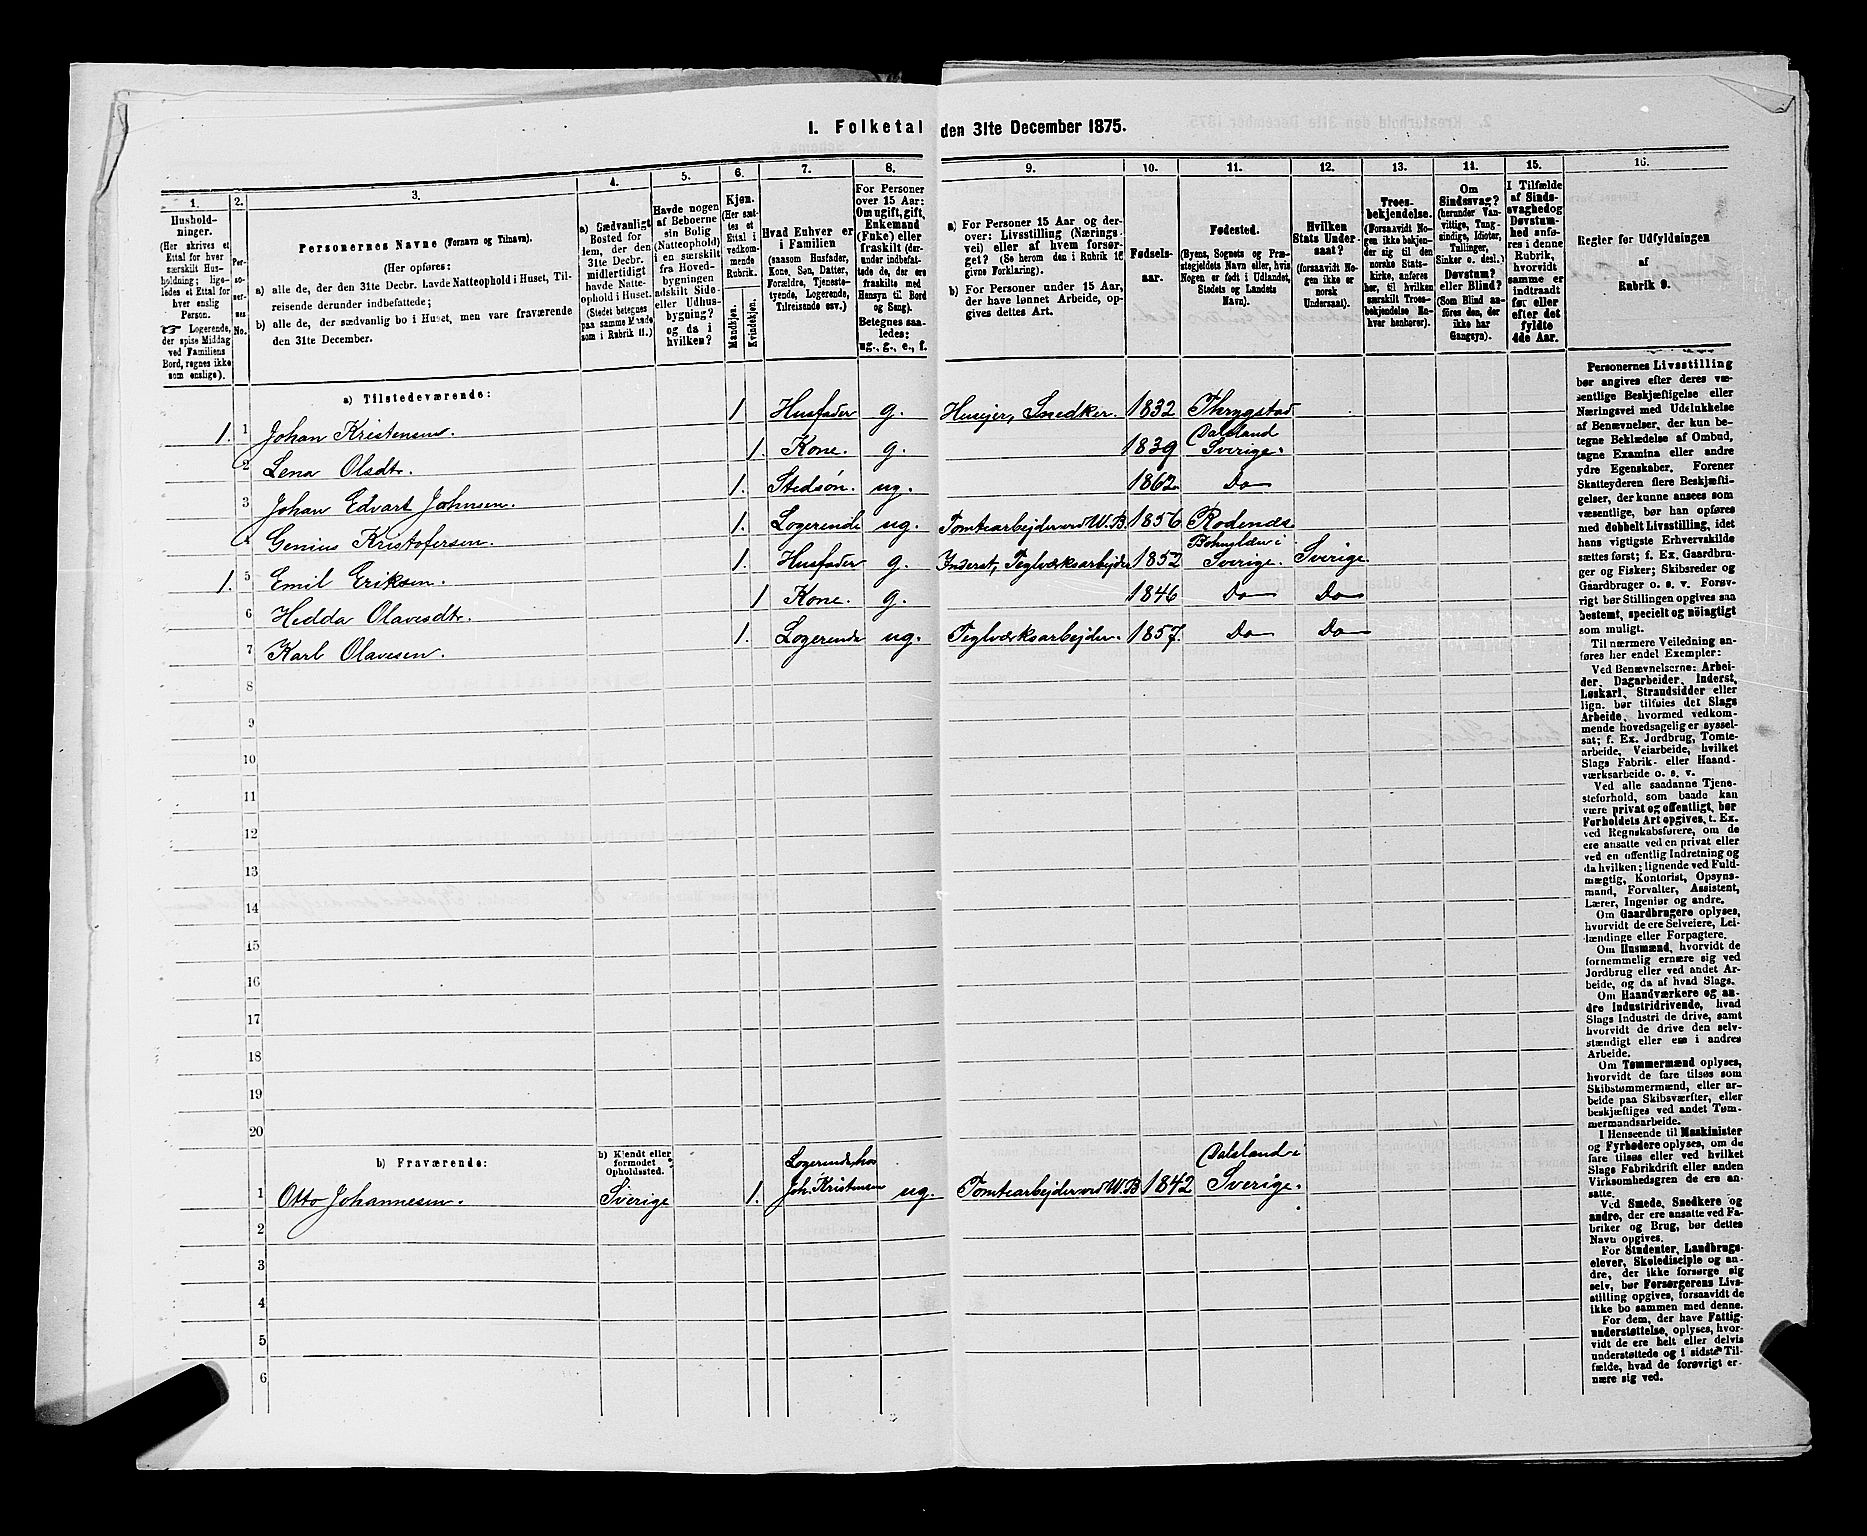 I. Folketal den 31te December 1875.
1. Hushold-
ninger.
(Her skrives et
Ettal for hver
særskilt Hus-
holdning; lige-
ledes et Ettal for
hver enslig
Person.
☞ Logerende,
der spise Middag
ved Familiens
Bord, regnes ikke
som enslige).
2.
Per-
so-
ner-
nes
No.
3.
Personernes Navne (Fornavn og Tilnavn).
(Her opføres:
a) alle de, der den 31te Decbr. havde Natteophold i Huset, Til-
reisende derunder indbefattede;
b) alle de, der sædvanlig bo i Huset, men vare fraværende
den 31te December.
4.
a) Sædvanligt
Bosted for
dem, der den
31te Decbr.
midlertidigt
havde Natte-
ophold i Huset.
(Stedet betegnes
paa samme Maade
som i Rubrik 11.)
5.
Havde nogen
af Beboerne
sin Bolig
(Natteophold)
i en særskilt
fra Hoved-
bygningen
adskilt Side-
eller Udhus-
bygning?
og da i
hvilken?
6.
Kjøn.
(Her sæt-
tes et
Ettal i
vedkom-
mende
Rubrik.
Mandkjøn.
Kvindekjøn.
7.
Hvad Enhver er
i Familien
(saasom Husfader,
Kone, Søn, Datter,
Forældre, Tjeneste-
tyende, Logerende,
Tilreisende osv.)
8.
For Personer
over 15 Aar:
Om ugift, gift,
Enkemand
(Enke) eller
fraskilt (der-
under indbefat-
tede de, der ere
fraskilte med
Hensyn til Bord
og Seng).
Betegnes saa-
ledes:
ug., g., e., f.
9.
a) For Personer 15 Aar og der-
over: Livsstilling (Nærings-
vei) eller af hvem forsør-
get? (Se herom den i Rubrik 16
givne Forklaring).
b) For Personer under 15 Aar,
der have lønnet Arbeide, op-
gives dettes Art.
10.
Fødsels-
aar.
11.
Fødested.
(Byens, Sognets og Præ-
stegjeldets Navn eller, hvis
Nogen er født i Udlandet,
Stedets og Landets
Navn).
12.
Hvilken
Stats Under-
saat?
(forsaavidt No-
gen ikke er
norsk
Undersaat).
13.
Troes-
bekjendelse.
(Forsaavidt No-
gen ikke bekjen-
der sig til den
norske Stats-
kirke, anføres
her, til hvilken
særskilt Troes-
bekjendelse En-
hver henhører).
14.
Om
Sindssvag?
(herunder Van-
vittige, Tung-
sindige, Idioter,
Tullinger,
Sinker o. desl.)
Døvstum?
eller Blind?
(Som Blind an-
føres den, der
ikke har
Gangsyn).
15.
I Tilfælde
af Sinds-
svaghed og
Døvstum-
hed anfø-
res i denne
Rubrik,
hvorvidt
samme er
indtraadt
før eller
efter det
fyldte
4de Aar.
16.
Regler for Udfyldningen
af
Rubrik 9.
a) Tilstedeværende:
1. 1 Johan Kristensen. 1. Husfader g. Huseier, Snedker. 1832 Thrygstad
2 Lena Olsdtr. 1. Kone. g. 1839 Dalsland Sverige.
3 Johan Edvart Johnsen. 1. Stedsøn. ug. 1862 Do
4 Genius Kristofersen. 1. Logerende ug. Tomtearbejder ved W.B. 1856 Rodenæs.
1. 5 Emil Eriksen. 1. Husfader g. Inderst, Teglværksarbejder 1852 Bohuslän i Sverige. Sverige.
6 Hedda Olavesdtr. 1 Kone. g. 1846 Do Do
7 Karl Olavesen. 1. Logerende ug. Teglværksarbejder. 1857. Do Do
8
9
10
11
12
13
14
15
16
17
18
19
20
b) Fraværende:
b) Kjendt eller
formodet
Opholdssted.
1 Otto Johannesen. Sverige 1. Logerende hos Joh. Kristensen ug. Tomtearbejder ved W.B 1842 Dalsland i Sverige.
2
3
4
5
6
Personernes Livsstilling
bør angives efter deres væ-
sentlige Beskjæftigelse eller
Næringsvei med Udelukkelse
af Benævnelser, der kun be-
tegne Beklædelse af Ombud,
tagne Examina eller andre
ydre Egenskaber. Forener
Skatteyderen flere Beskjæfti-
gelser, der kunne ansees som
væsentlige, bør han opføres
med dobbelt Livsstilling, idet
hans vigtigste Erhvervskilde
sættes først; f. Ex. Gaardbru-
ger og Fisker; Skibsreder og
Gaardbruger o. s. v. Forøv-
rigt bør Stillingen opgives saa
bestemt, specielt og nöiagtigt
som muligt.
Til nærmere Veiledning an-
føres her endel Exempler:
Ved Benævnelserne: Arbei-
der, Dagarbeider, Inderst,
Løskarl, Strandsidder eller
lign. bør tilføies det Slags
Arbeide, hvormed vedkom-
mende hovedsagelig er syssel-
sat; f. Ex. Jordbrug, Tomte-
arbeide, Veiarbeide, hvilket
Slags Fabrik- eller Haand-
værksarbeide o. s. v.
Ved alle saadanne Tjene-
steforhold, som baade kan
være privat og offentligt, bør
Forholdets Art opgives, t. Ex.
ved Regnskabsførere, om de
ere ansatte ved en privat eller
ved en offentlig Indretning og
da hvilken; lignende ved Fuld-
mægtig, Kontorist, Opsyns-
mand, Forvalter, Assistent,
Lærer, Ingeniør og andre.
Om Gaardbrugere oplyses,
hvorvidt de ere Selveiere, Lei-
lændinge eller Forpagtere.
Om Husmænd, hvorvidt de
fornemmelig ernære sig ved
Jordbrug eller ved andet Ar-
beide, og da af hvad Slags.
Om Haandværkere og an-
dre Industridrivende, hvad
Slags Industri de drive, samt
hvorvidt de drive den selv-
stændigt eller ere i andres
Arbeide.
Om Tømmermænd oplyses,
hvorvidt de fare tilsøs som
Skibstømmermænd, eller ar-
beide paa Skibsværfter, eller
beskjæftiges ved andet Tøm-
mermandsarbeide.
I Henseende til Maskinister
og Fyrbødere oplyses, om de
fare tilsøs eller ved hvilket
Slags Fabrikdrift eller anden
Virksomhedsgren de ere an-
satte.
Ved Smede, Snedkere og
andre, der ere ansatte ved Fa-
briker og Brug, bør dettes
Navn opgives.
For Studenter, Landbrugs-
elever, Skoledisciple og an-
dre, der ikke forsørge sig
selv, bør Forsørgerens Livs-
stilling opgives, forsaavidt de
ikke bo sammen med denne.
For dem, der have Fattig-
understøttelse, oplyses, hvor-
vidt de ere helt eller delvis
understøttede og i sidste Til-
fælde, hvad de forøvrigt er-
nære sig ved.